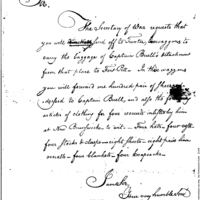 Sir,
The Secretary of War requests that
you will send off to Trenton, two waggons to
carry the baggage of Captain Buell's detachment
from that place to Fort Pitt. In these waggons
you will forward one hundred pair of shoes
to Captain Buell, and also the following
articles of clothing for four recruits inlisted by him
at New Brunswick to wit. Four hats, four
four stocks & clasps eight shirts, eight pair
four blankets, four knapsacks.
I am Sir,
Your very humble Serv